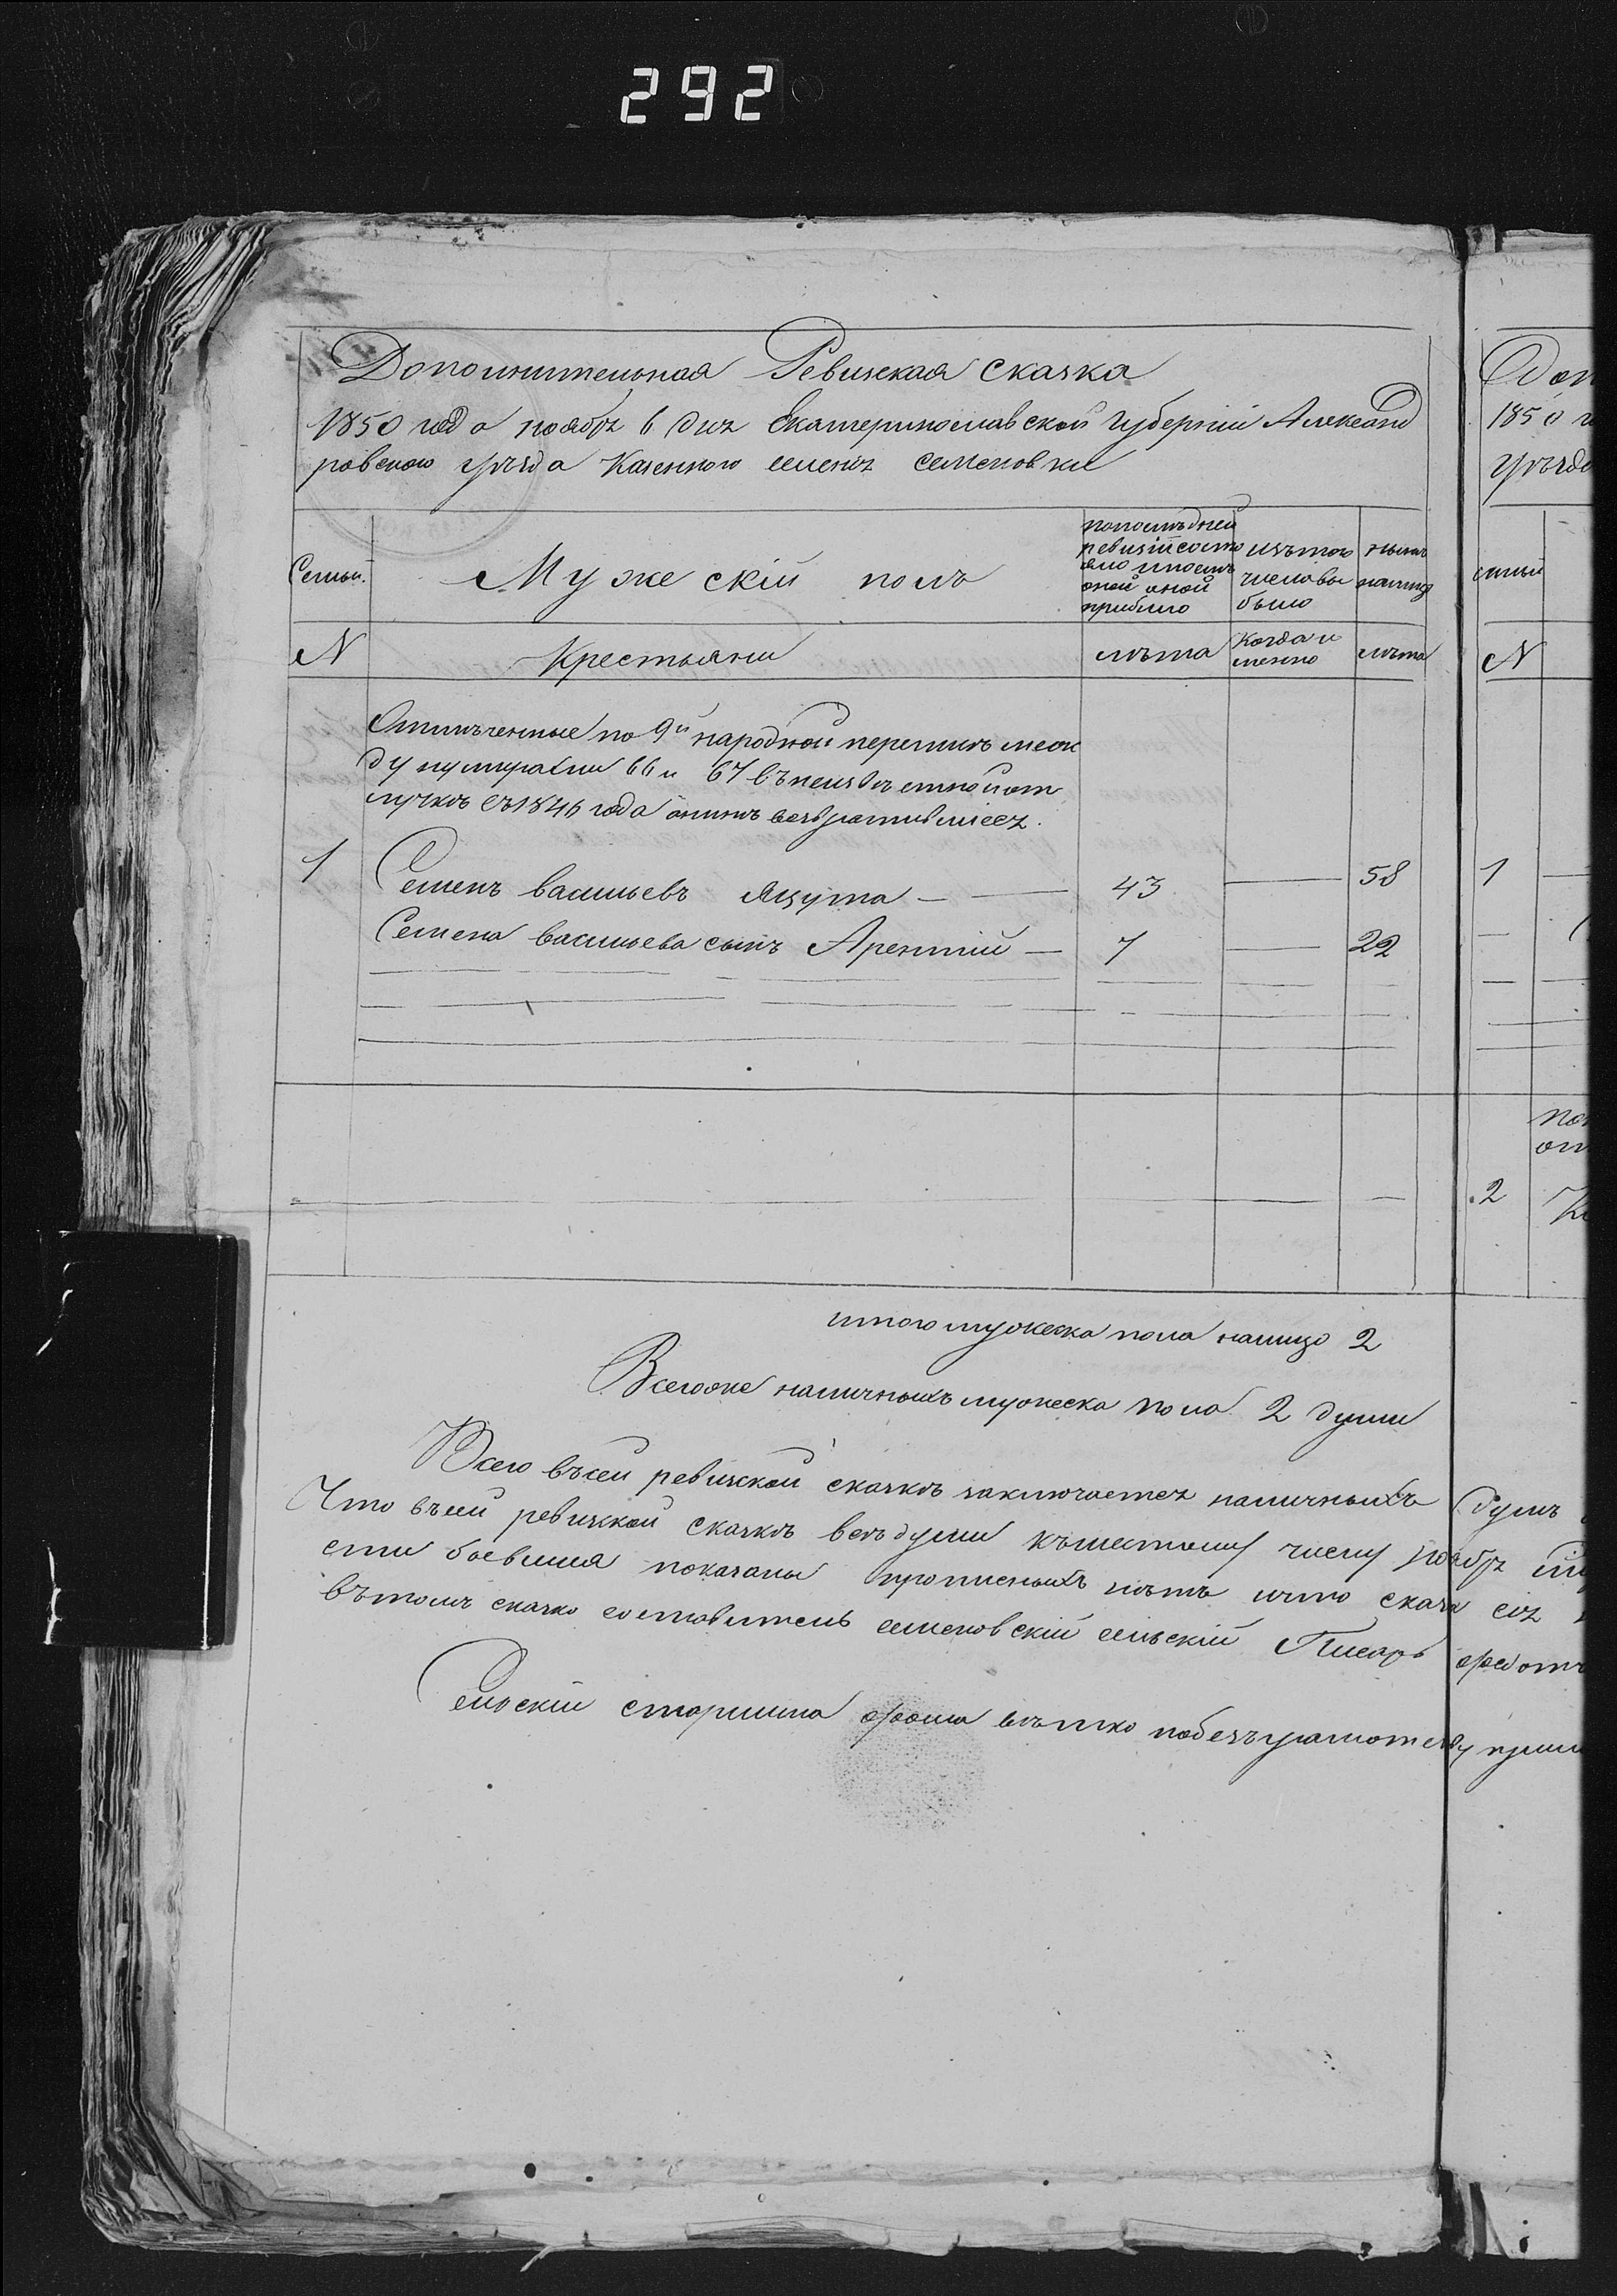 292
Дополнительная Ревизская сказка
1850 года ноября 6 дня Екатеринославской губерніи Александ
ровскаго уѣзда Казенного селенія Семеновки
Семьи.
Мужескій полъ
попослѣдней
ревизіи состо
яло и послѣ
оной
прибыло
изътого
числа вы
было
ныне
налицо
N
Крестьяни
лѣта
Когда и
менно
лѣта
Отмѣченные по 9й народной переписѣ меж
ду нумерами 66 и 67 въ неизвѣстной от
лучкѣ съ 1846 года онинѣ возвратившіеся.
1
Семенъ васильевъ Яцута
43
58
Семена васильева сынъ Арентій
7
22
итого мужеска пола налицо 2
Всегоже наличныхъ мужеска пола 2 души
Всего въсей ревизской сказкѣ заключается наличныхъ душъ
Что въсей ревизской сказкѣ всѣ души къшестому числу ноября
показаны прописныхъ нѣтъ ичто сказка сія
вътомъ сказко составитель семеновскій сельскій Писарь
Сельскій старшина фома побезъграмотству
Доп
1850 г
уѣзда
семьи
N
1
2